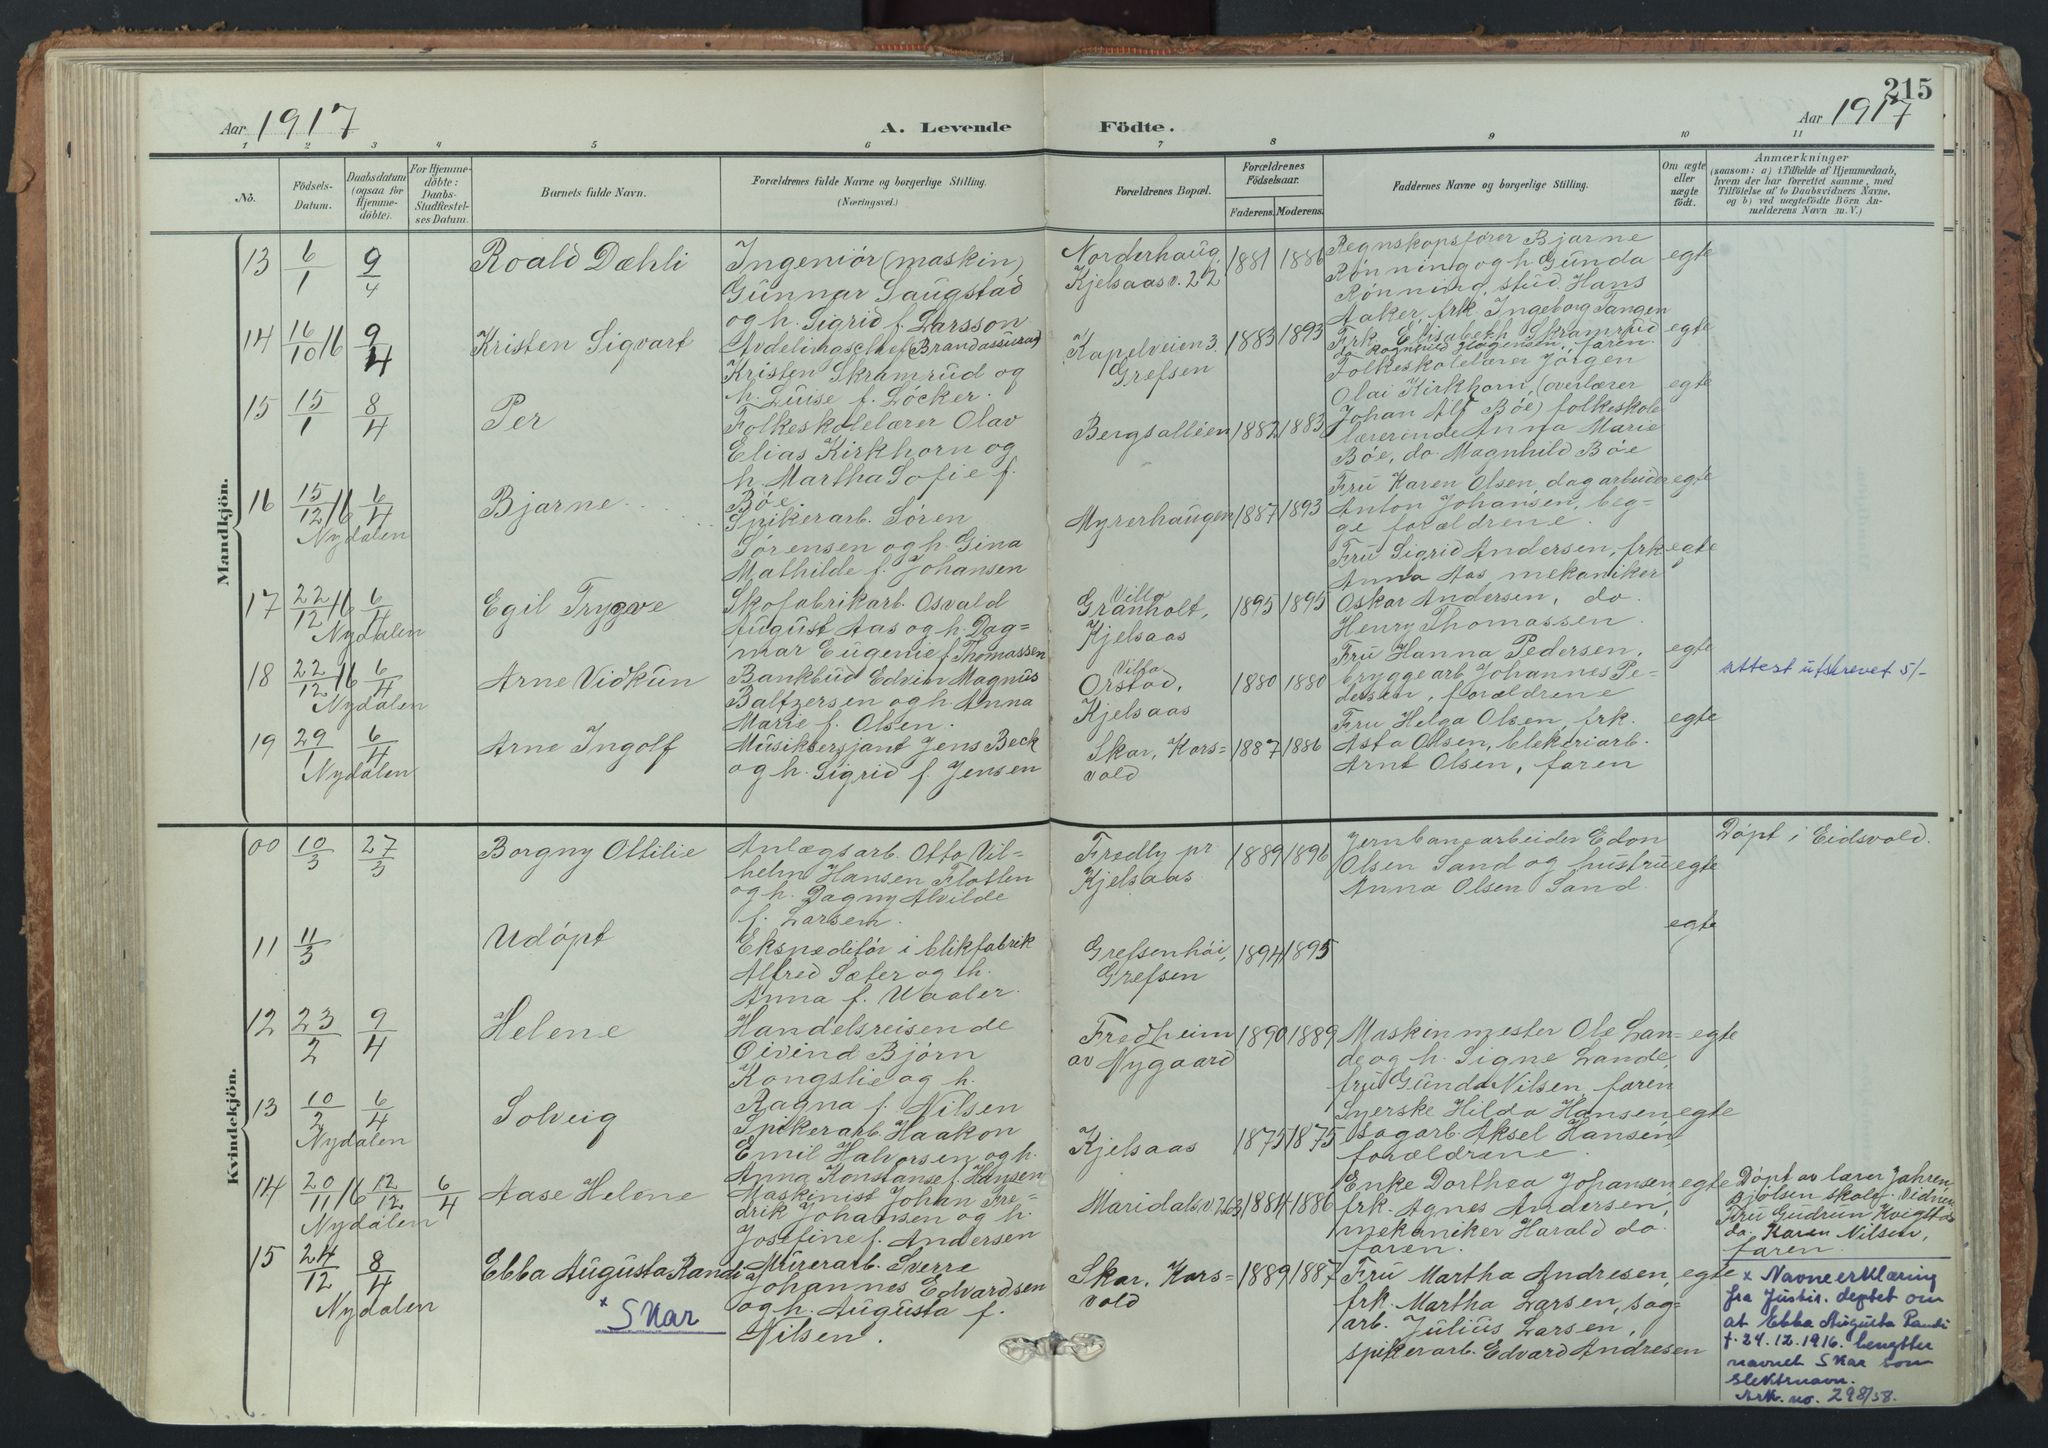 215
Aar 1917
A. Levende
Födte.
Aar 1917
1 2 3 4 5 6 7 8 9 10 11
No.
Födsels-
Datum.
Daabsdatum
(ogsaa for
Hjemme-
döbte).
For Hjemme-
döbte:
Daabs-
Stadfæstel-
ses Datum.
Barnets fulde Navn.
Forældrenes fulde Navne og borgerlige Stilling.
(Næringsvei.)
Forældrenes Bopæl.
Forældrenes
Födselsaar.
Faderens. Moderens.
Faddernes Navne og borgerlige Stilling.
Om ægte
eller
uægte
födt.
Anmærkninger
(saasom: a) i Tilfælde af Hjemmedaab,
hvem der har forrettet samme, med
Tilföielse af to Daabsvidners Navne,
og b) ved uægtefödte Börn An-
melderens Navn m. V.)
Mandkjön.
13 6/1 9/4 Roald Dæhli
Ingeniør (maskin)
Gunnar Saugstad
og h. Sigrid f. Larsson
Norderhaug
Kjelsaasv. 22
1881 1886
Regnskapsfører Bjarne
Rønning og h. Gunda
Rønning, stud. Hans
Aaker, frk. Ingeborg Tangen
egte
14 16/10 16 9/4 Kristen Sigvart
Avdelingschef (Brandassuran)
Kristen Skramrud og
h. Luise f. Löcker.
Kapelveien 3.
Grefsen
1883 1893
Frk. Elisabeth Skramrud
do Ragnhild Hogensen, faren.
egte
15 15/1 8/4 Per
Folkeskolelærer Olav
Elias Kirkhorn og
h. Martha Sofie f.
Bøe.
Bergsalléen
1882 1883
Folkeskolelærer Jørgen
Olai Kirkhorn, (overlærer
Johan Alf Bøe) folkeskole
lærerinde Anna Marie
Bøe, do. Magnhild Bøe
egte
16 15/12 16 6/4 Bjarne
Nydalen
Spikerarb. Sören
Sørensen og h. Gina
Mathilde f. Johansen
Myrerhaugen
1887 1893
Fru Karen Olsen, dagarbeider
Anton Johansen, beg-
ge forældrene.
egte
17 22/12 16 6/4 Egil Trygve
Nydalen
Skofabrikarb. Osvald
August Aas og h. Dag-
mar Eugenie f. Thomassen
Villa
Granholt,
Kjelsaas
1895 1895
Fru Sigrid Andersen, frk
Anna Aas, mekaniker
Oskar Andersen, do.
Henry Thomassen.
egte
18 22/12 16 6/4 Arne Vidkun
Nydalen
Bankbud Edvin Magnus
Baltzersen og h. Anna
Marie f. Olsen.
Villa
Orstad,
Kjelsaas
1880 1880
Fru Hanna Pedersen,
bryggearb. Johannes Pe-
dersen, forældrene
egte
Attest utskrevet 5/-
19 29/1 6/4 Arne Ingolf
Nydalen
Musiksersjant Jens Beck
og h. Sigrid f. Jensen
Skar, Kors-
vold
1887 1886
Fru Helga Olsen, frk.
Asta Olsen, blekeriarb.
Arnt Olsen, faren
egte
Kvindekjön.
00 10/3 27/3 Borgny Ottilie
Anlægsarb. Otto Vil-
helm Hansen Flotten
og h. Dagny Alvilde
f. Larsen.
Fredly pr.
Kjelsaas
1889 1896
Jernbanearbeider Edon
Olsen Sand og hustru
Anna Olsen Sand.
egte
Døpt i Eidsvold.
11 11/3 Udøpt
Ekspeditør i blikfabrik
Alfred Sæter og h.
Anna f. Waaler.
Grefsenhöi,
Grefsen
1894 1895
egte
12 23/2 9/4 Helene
Handelsreisende
Oivind Bjørn
Kongslie og h.
Ragna f. Nilsen
Fredheim
av Nygaard
1890 1889
Maskinmester Ole Lan-
de og h. Signe Lande,
fru Gunda Nilsen, faren
egte
13 10/2 6/4 Solveig
Nydalen
Spikerarb. Haakon
Emil Halvorsen og h.
Anna Konstanse f. Hansen
Kjelsaas
1875 1875
Syerske Hilda Hansen
sagarb. Aksel Hansen
forældrene.
egte
14 20/11 16 12/12 6/4 Aase Helene
Nydalen
Maskinist Johan Fre-
drik Johansen og h.
Josefine f. Andersen
Maridalsv. 263
1884 1886
Enke Dorthea Johansen
frk. Agnes Andersen,
mekaniker Harald do.
faren.
egte
Døpt av lærer Jahren,
Bjølsen skole. Vidner
Fru Gudrun
do. Karen Nilsen,
faren.
15 24/12 8/4 Ebba Augusta Randi
Nydalen
x Skar
Murerarb. Sverre
Johannes Edvardsen
og h. Augusta f.
Nilsen.
Skar, Kors-
vold
1889 1887
Fru Martha Andresen,
frk. Martha Larsen, sag-
arb. Julius Larsen,
spikerarb. Edvard Andresen
egte
x Navneerklæring
fra Justis. deptet om
at Ebba Augusta Randi
f. 24.12.1916. benytter
navnet Skar som
slektsnavn.
Ark. no. 298/58.